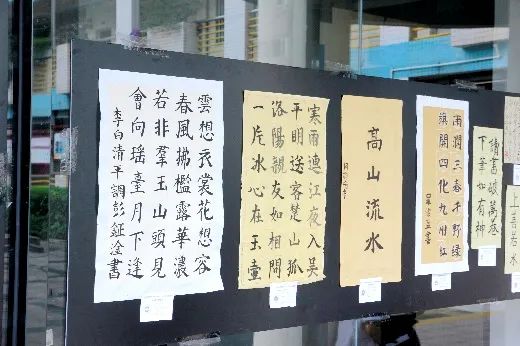 雲想衣裳花想容
春風拂檻露華濃
若非羣玉山頭見
會向瑤臺月下逢
李白清平調彭書
寒雨連江夜入吳
平明送客楚山孤
洛陽親友如相問
一片冰心在玉壺
高山流水
雨潤三春千野綠
開四化九州紅
讀書破萬卷
下筆如有神
上善若水